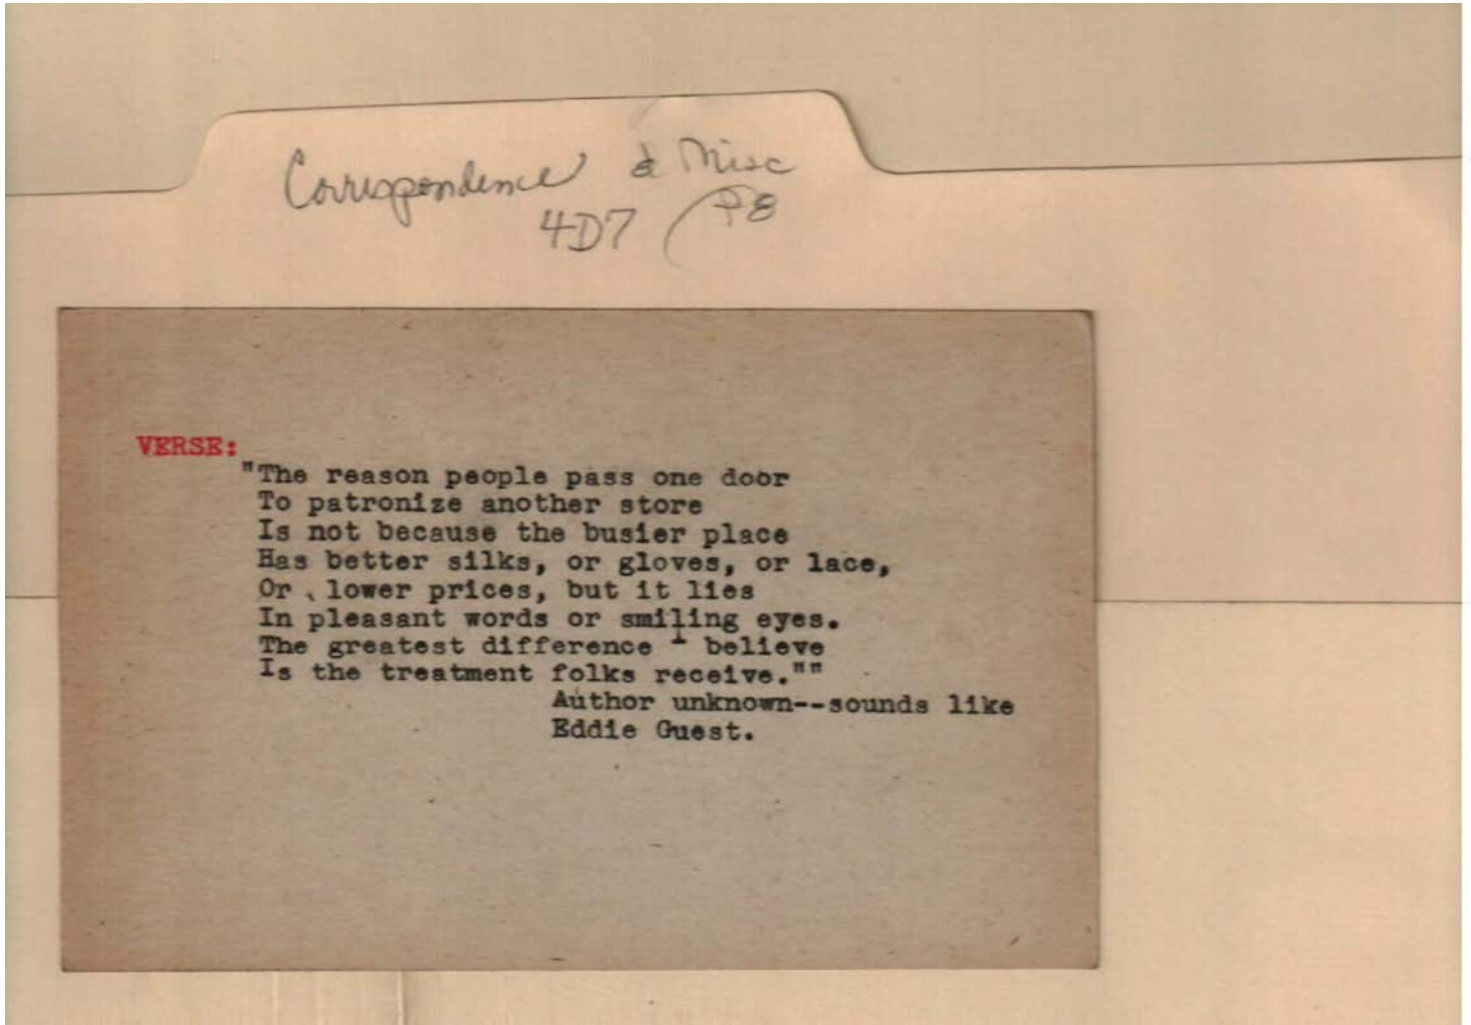 Correspondence & Misc
4D7 P8
VERSE:
"The reason people pass one door
To patronize another store
Is not because the busier place
Has better silks, or gloves, or lace,
Or lower prices, but it lies
In pleasant words or smiling eyes.
The greatest difference I believe
Is the treatment folks receive.""
Author unknown--sounds like
Eddie Guest.